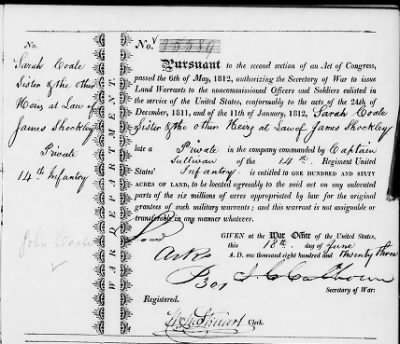 No.
Sarah Coale
Sister & the other
Heirs at Law of
James Shockley
Private
14th Infantry
John Coale
WAR DEPARTMENT.
No. 25589
Pursuant to the second section of an Act of Congress,
passed the 6th of May, 1812, authorizing the Secretary of War to issue
Land Warrants to the noncommissioned Officers and Soldiers enlisted
in the service of the United States, conformably to the acts of the 24th
December, 1811, and of the 11th January, 1812, Sarah Coale
Sister & the other Heirs at Law of James Shockley
late a Private in the company commanded by Captain
Sullivan of the 14th Regiment United
States' Infantry, is entitled to ONE HUNDRED AND SIXTY
ACRES OF LAND, to be located agreeably to the said act on any unlocated
part of the six millions of acres appropriated by law for the original
grantees of such military warrants; and this warrant is not assignable or
transferable in any manner whatever.
GIVEN at the War Office of the United States,
this 18th day of June
A. D. one thousand eight hundred and twenty three
Arks
J. C. Calhoun
Secretary of War.
Registered.
Stuart Clerk.